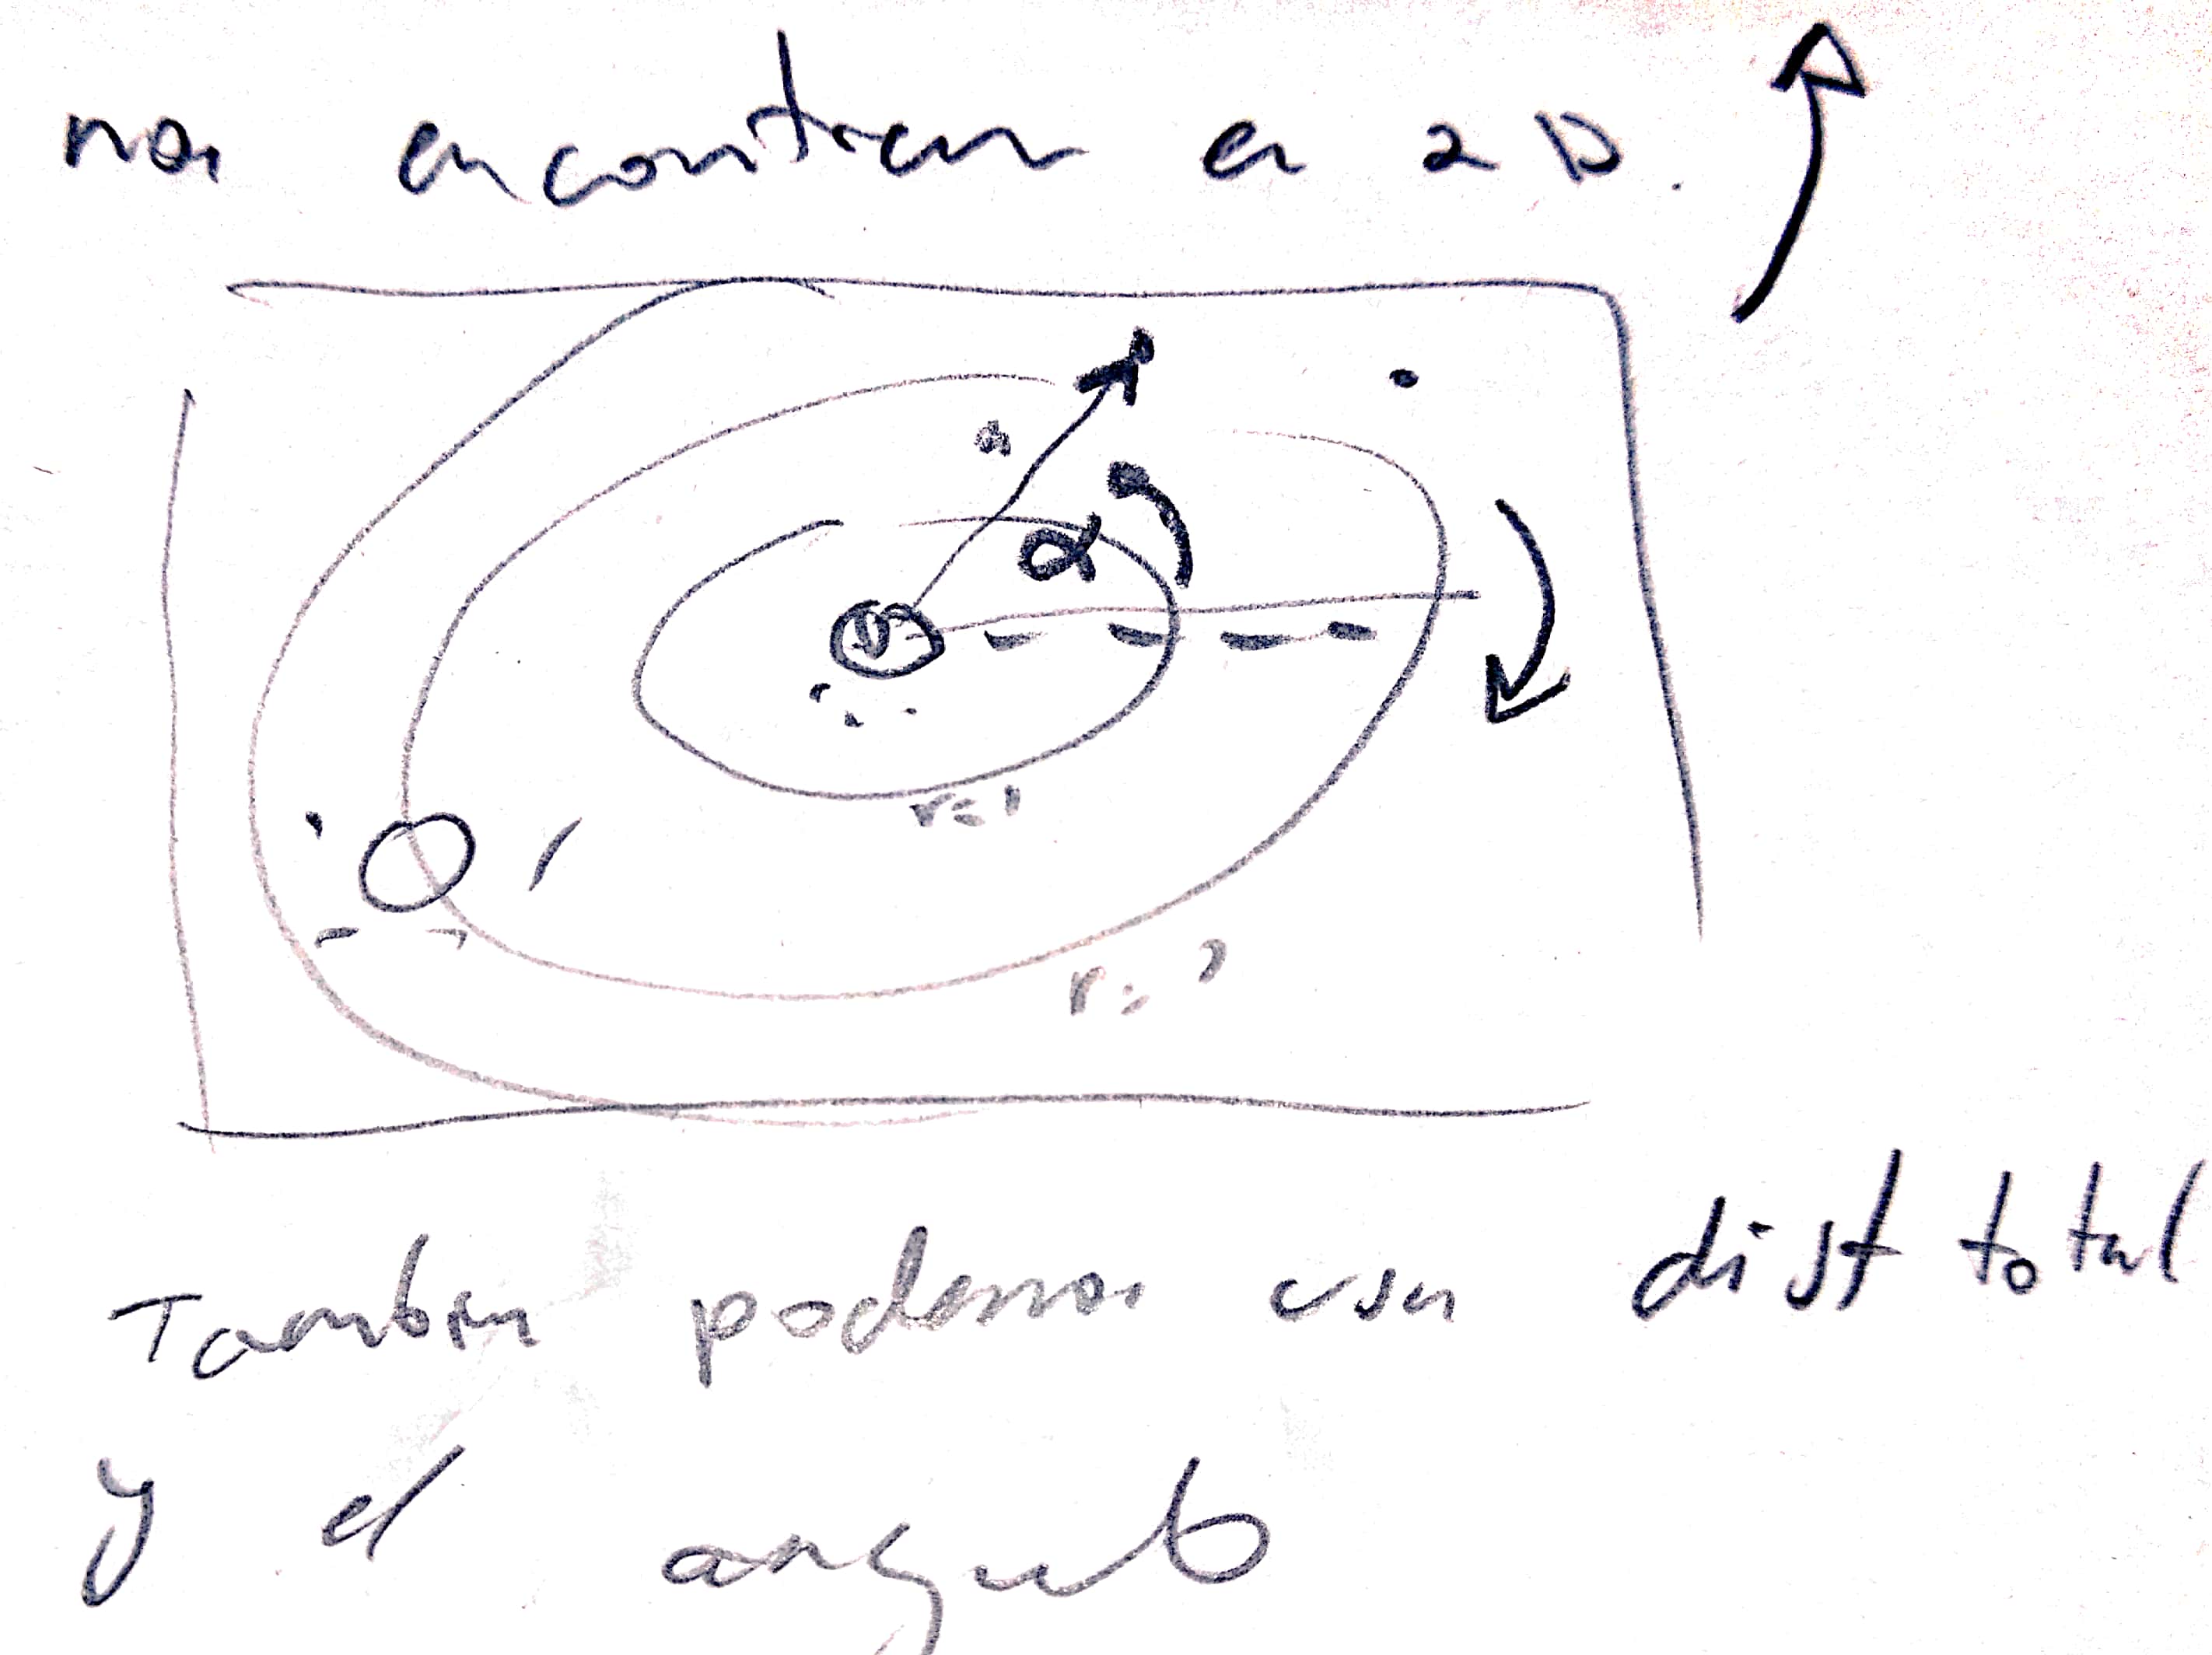 nos encontramos en 2D.
α
r=1
r=
Tambien podemos usar dist total
y el angulo